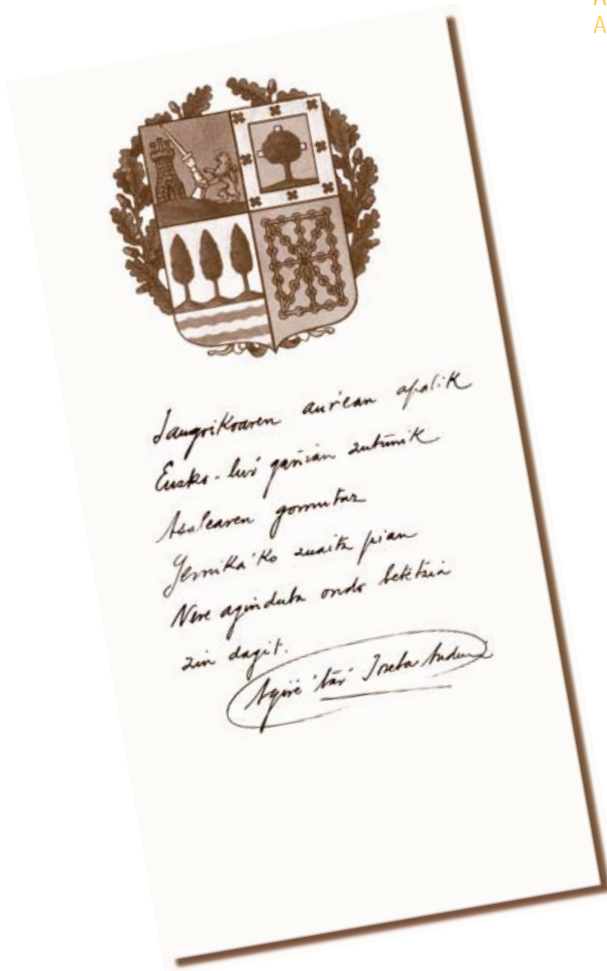 A
A
Jaungoikoaren aurrean apalik
Eusko-luŕ gañian zutunik
Asabearen gomutaz
Gernika'ko zuaitz pian
Nere aginduba ondo betetzia
zin dagit.
Agiŕe'taŕ Joseba Andoni